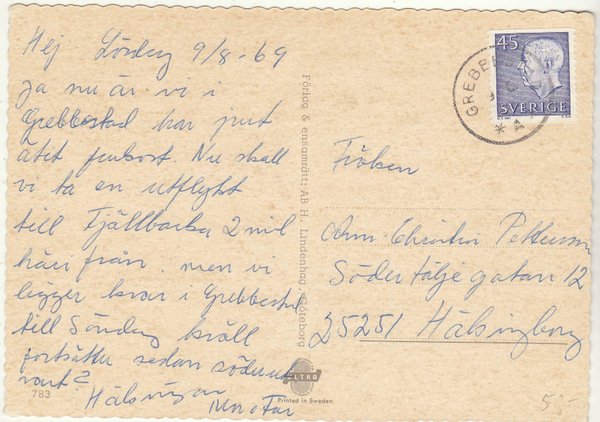 Hej Lördag 9/8-69
Ja nu är vi i
Grebbestad har just
ätit frukost. Nu skall
vi ta en utflykt
till Fjällbacka 2 mil
härifrån. men vi
ligger kvar i Grebbestad
till Söndag kväll
fortsätter sedan söderut
Hälsningar
Mor o Far
783
Förlag & ensamrätt: AB H. Lindenhag, Göteborg
ULTRA
Printed in Sweden
45
SVERIGE
GREBBE
* A
Fröken
Ann-Christin Pettersson
Södertäljegatan 12
25251 Hälsingborg
5:-